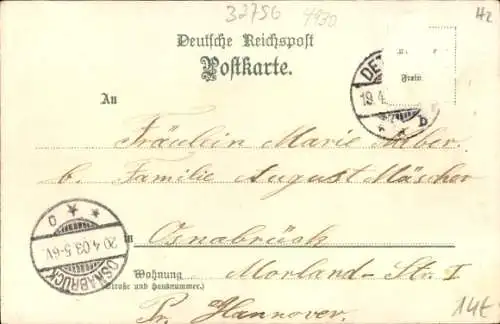 32756 4930 Hz
Deutsche Reichspost
Postkarte.
DET
19.4
Frein
b
An
Fräulein Marie
b. Familie August Mäscher
in Osnabrück
OSNABRÜCK
20.4.03.5-6V
Wohnung Morland-Str. I
(Straße und Hausnummer.)
Pr. Hannover.
14E